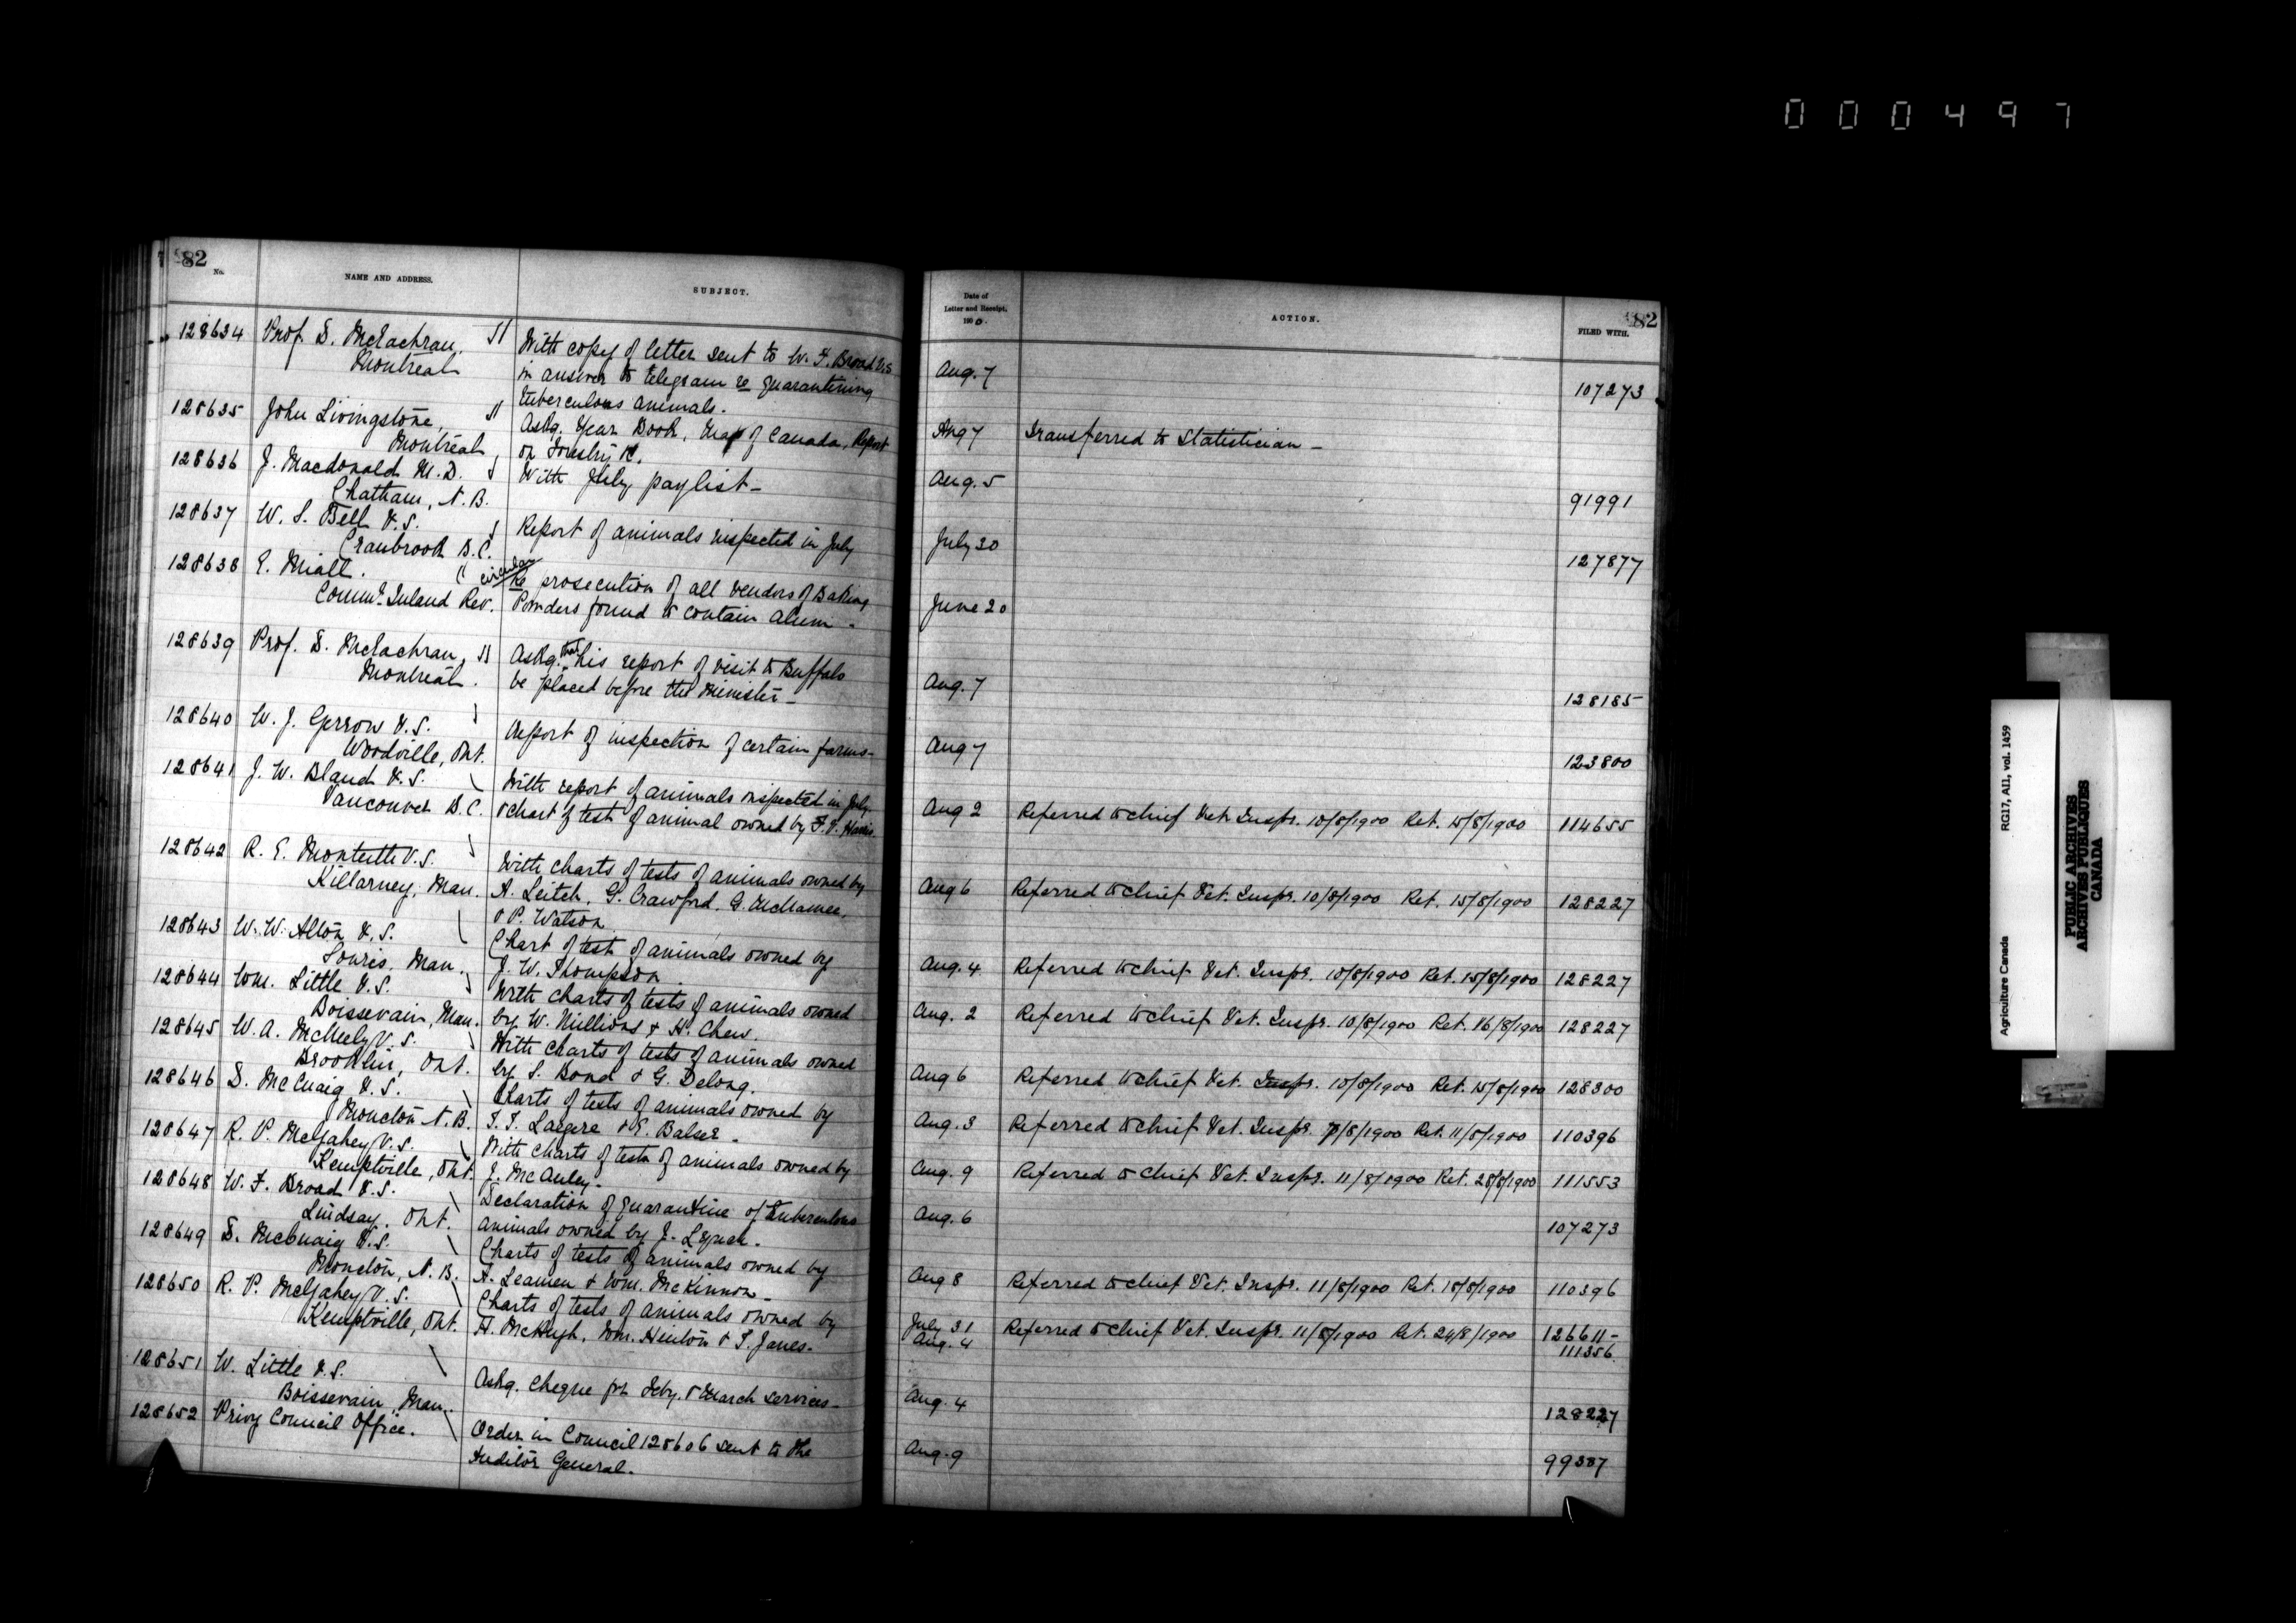 000497
82
No.
NAME AND ADDRESS.
SUBJECT.
128634 Prof. D. McEachran,
Montreal
With copy of letter sent to W. F. Broad V.S.
in answer to telegram re quarantining
tuberculous animals.
128635 John Livingstone,
Montreal
Askg. Year Book, Map of Canada, Report
on Forestry &c.
128636 J. Macdonald M.D.
Chatham, N.B.
With July paylist –
128637 W. S. Bell V.S.
Cranbrook B.C.
Report of animals inspected in July
128638 E. Miall.
Commr. Inland Rev.
circular
Re prosecution of all vendors of Baking
Powders found to contain alum –
128639 Prof. D. McEachran,
Montreal.
Askg. that his report of visit to Buffalo
be placed before the Minister –
128640 W. J. Gerrow V.S.
Woodville, Ont.
Report of inspection of certain farms –
128641 J. W. Bland V.S.
Vancouver B.C.
With report of animals inspected in July
& chart of test of animal owned by F. V. Harris
128642 R. E. Monteith V.S.
Killarney, Man.
With charts of tests of animals owned by
A. Leitch, G. Crawford, G. McNamee,
& P. Watson
128643 W. W. Alton V.S.
Souris, Man.
Chart of test of animals owned by
J. W. Thompson
128644 Wm. Little V.S.
Boissevain, Man.
With charts of tests of animals owned
by W. Millions & H. Chew.
128645 W. A. McNeely V.S.
Brooklin, Ont.
With charts of tests of animals owned
by S. Bond & G. Delong.
128646 D. McCuaig V.S.
Moncton N.B.
Charts of tests of animals owned by
& E. Balser –
128647 R. P. McGahey V.S.
Kemptville, Ont.
With charts of tests of animals owned by
J. McAuley –
128648 W. F. Broad V.S.
Lindsay, Ont.
Declaration of quarantine of Tuberculous
animals owned by J. Lynch –
128649 D. McCuaig V.S.
Moncton, N.B.
Charts of tests of animals owned by
A. Leamen & Wm. McKinnon –
128650 R. P. McGahey V.S.
Kemptville, Ont.
Charts of tests of animals owned by
H. McHugh, Wm. Hinton & S. Janes.
128651 W. Little V.S.
Boissevain, Man.
Askg. cheque for Feby. & March services –
128652 Privy Council Office.
Order in Council 128606 sent to the
Auditor General.
Date of
Letter and Receipt.
1900.
ACTION.
FILED WITH.
82
Aug. 7 107273
Aug 7 Transferred to Statistician –
Aug. 5 91991
July 30 127877
June 20
Aug. 7 128185
Aug 7 123800
Aug 2 Referred to Chief Vet. Inspr. 10/8/1900 Ret. 15/8/1900 114655
Aug 6 Referred to Chief Vet. Inspr. 10/8/1900 Ret. 15/8/1900 128227
Aug. 4 Referred to Chief Vet. Inspr. 10/8/1900 Ret. 15/8/1900 128227
Aug. 2 Referred to Chief Vet. Inspr. 10/8/1900 Ret. 16/8/1900 128227
Aug 6 Referred to Chief Vet. Inspr. 10/8/1900 Ret. 15/8/1900 128300
Aug. 3 Referred to Chief Vet. Inspr. 7/8/1900 Ret. 11/8/1900 110396
Aug. 9 Referred to Chief Vet. Inspr. 11/8/1900 Ret. 28/8/1900 111553
Aug. 6 107273
Aug 8 Referred to Chief Vet. Inspr. 11/8/1900 Ret. 18/8/1900 110396
July 31 Referred to Chief Vet. Inspr. 11/8/1900 Ret. 24/8/1900 126611 –
Aug. 4 111356
Aug. 4 128227
Aug. 9 99387
Agriculture Canada RG17, AI1, vol. 1459
PUBLIC ARCHIVES
ARCHIVES PUBLIQUES
CANADA